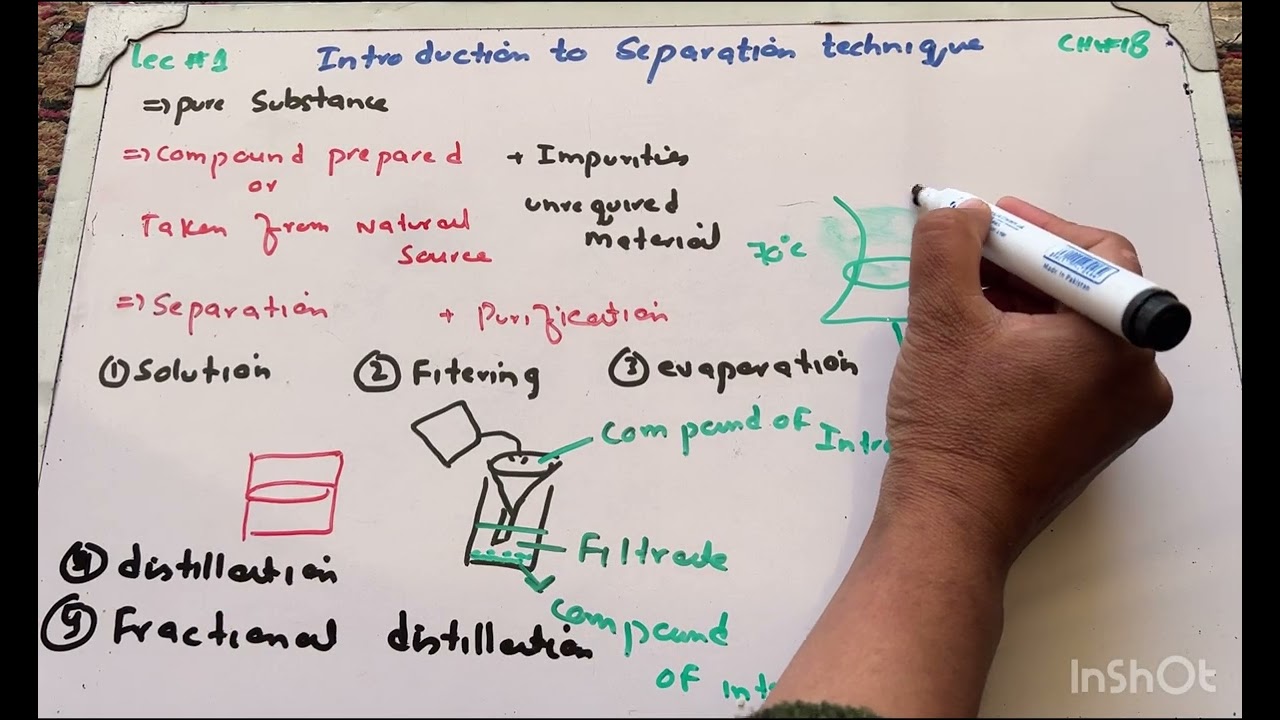 Lec #1 Introduction to Separation technique CH#18
⇒ pure Substance
⇒ Compound prepared + Impurities
or
unrequired
Taken from Natural
material
Source
70°C
⇒ Separation + Purification
① Solution ② Fitering ③ evaporation
Compound of Intr
④ distillation
Filtrate
Compound
⑤ Fractional distillation
of int
Made in Pakistan
InShOt